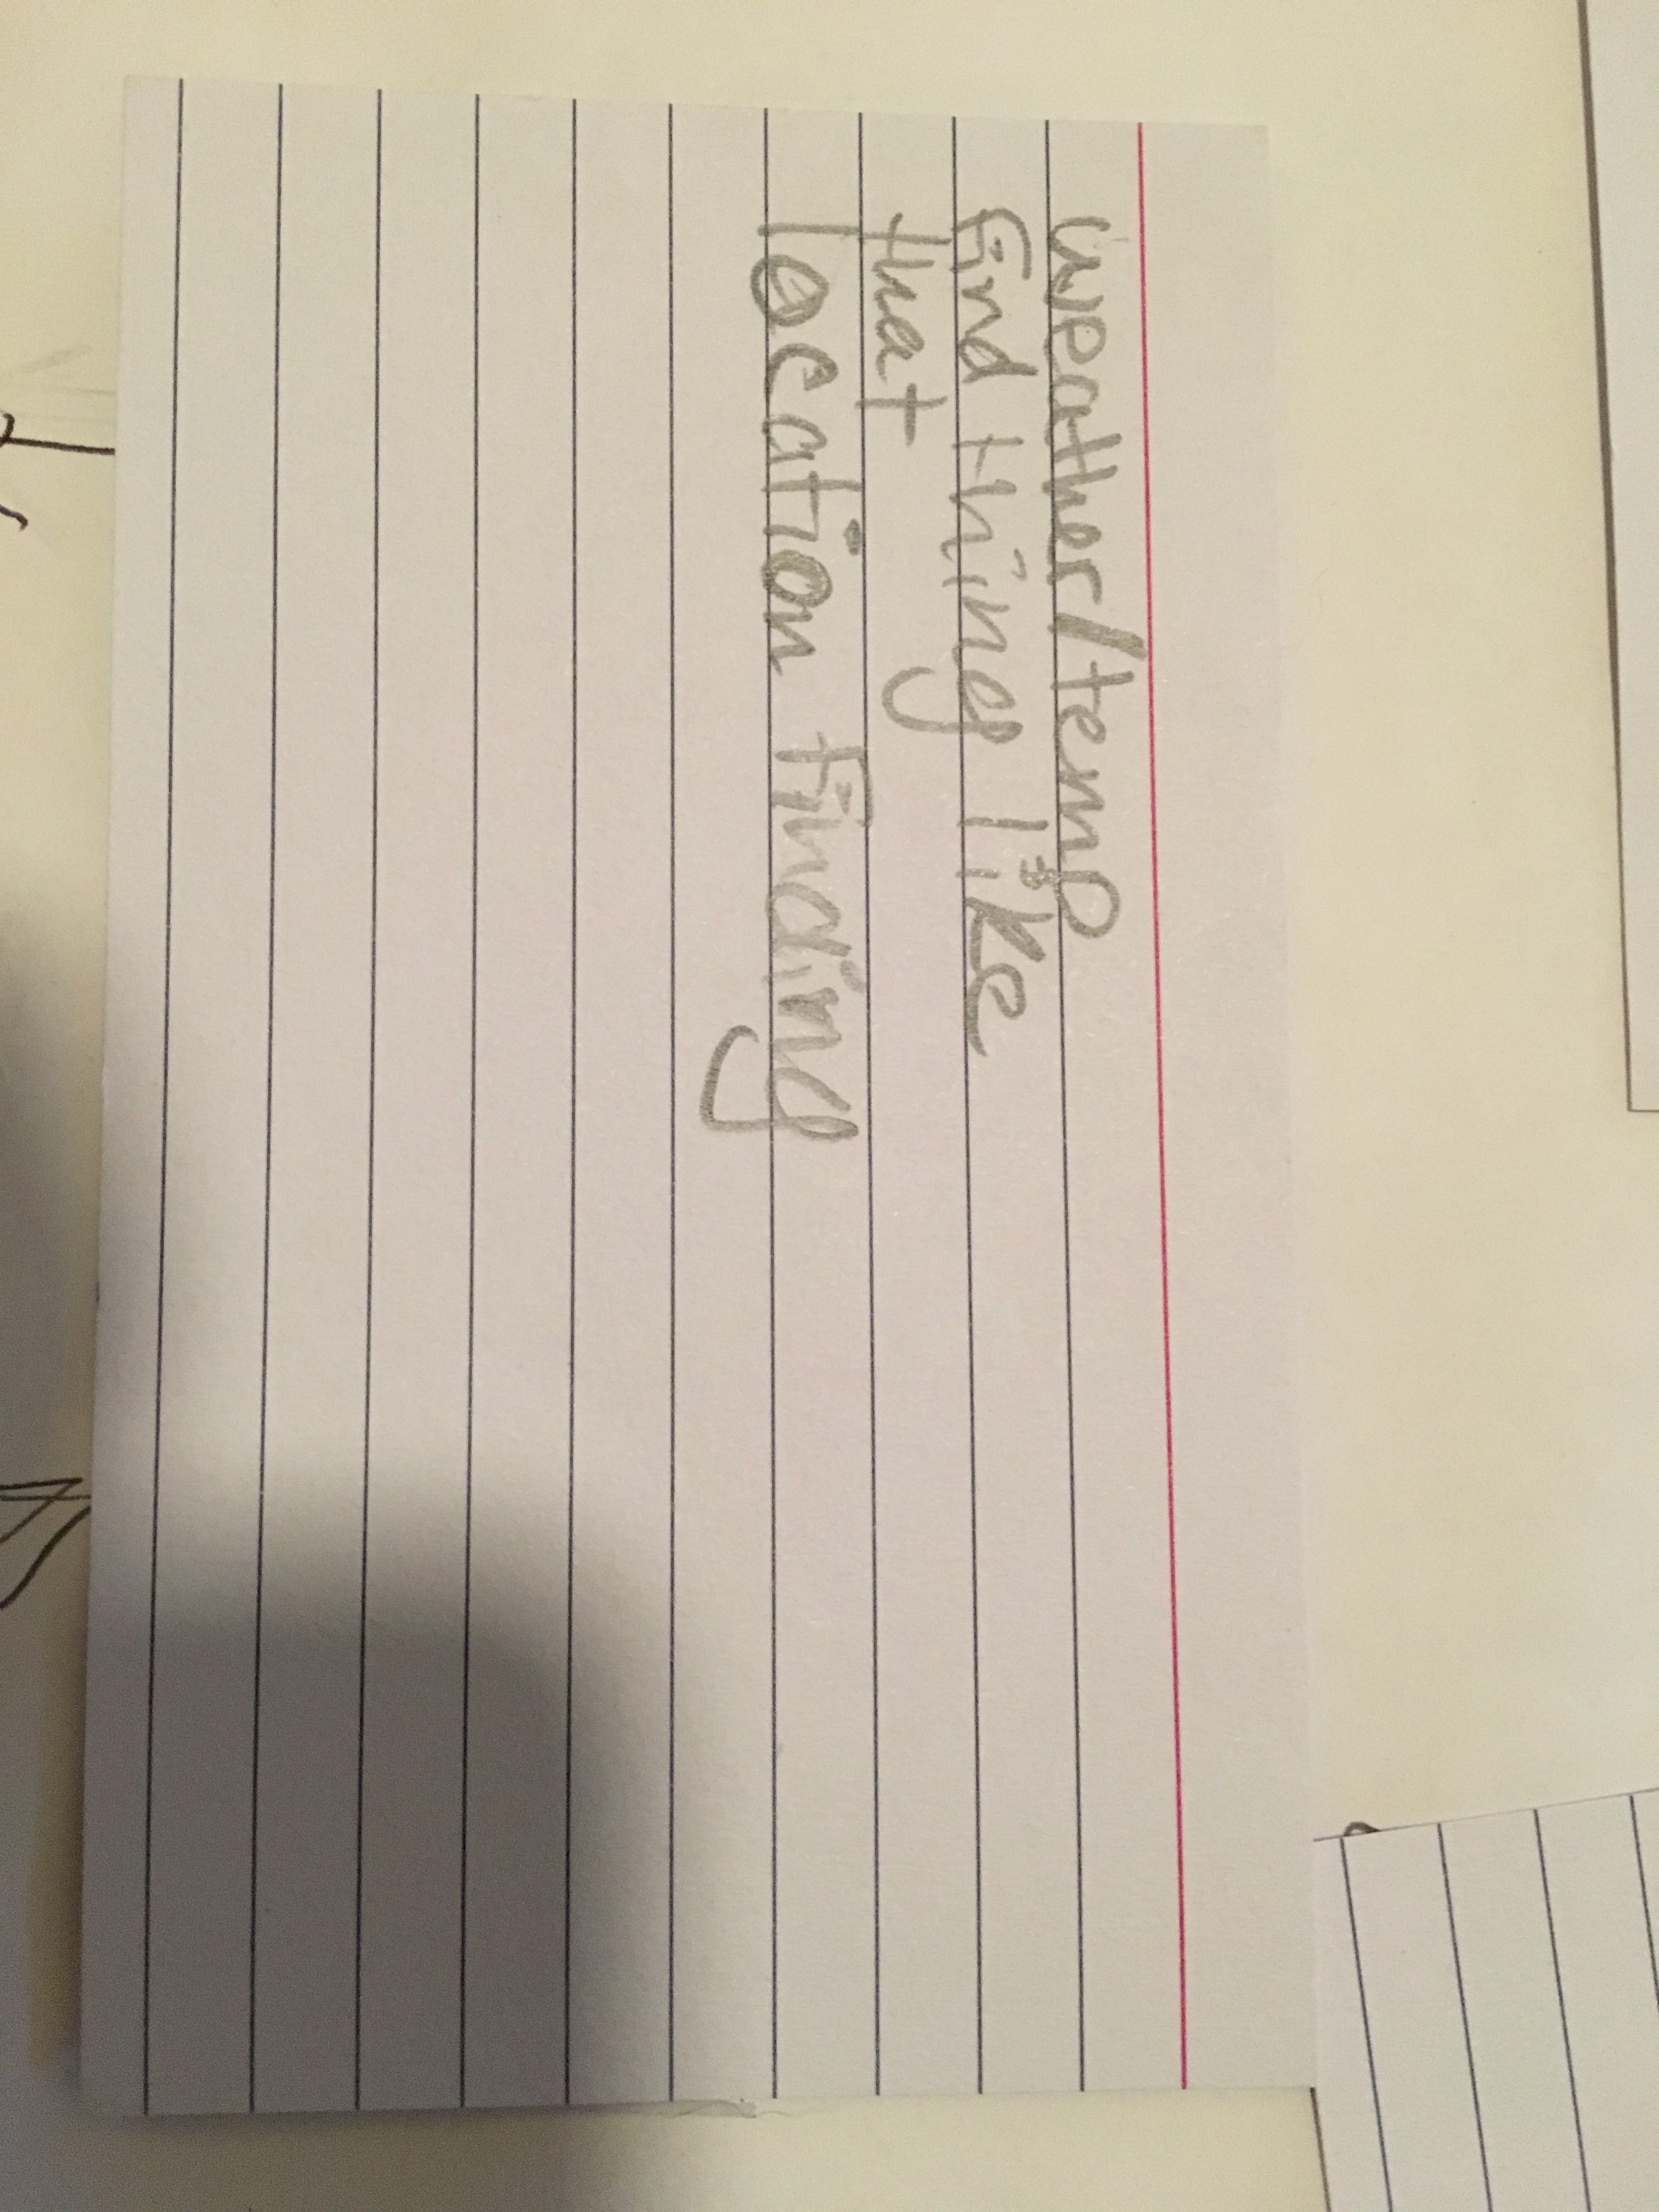 weather/temp
find thing like
that
location finding